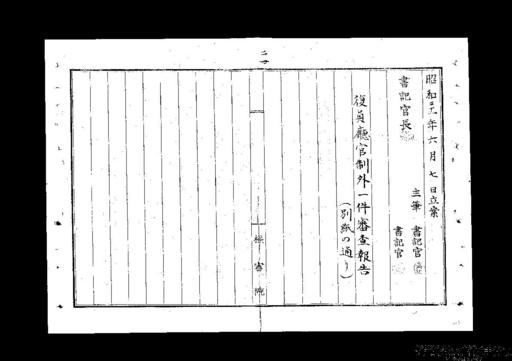 昭和二十一年六月七日立案
書記官長
主筆 書記官
書記官
復員廳官制外一件審査報告
（別紙の通り）
樞密院